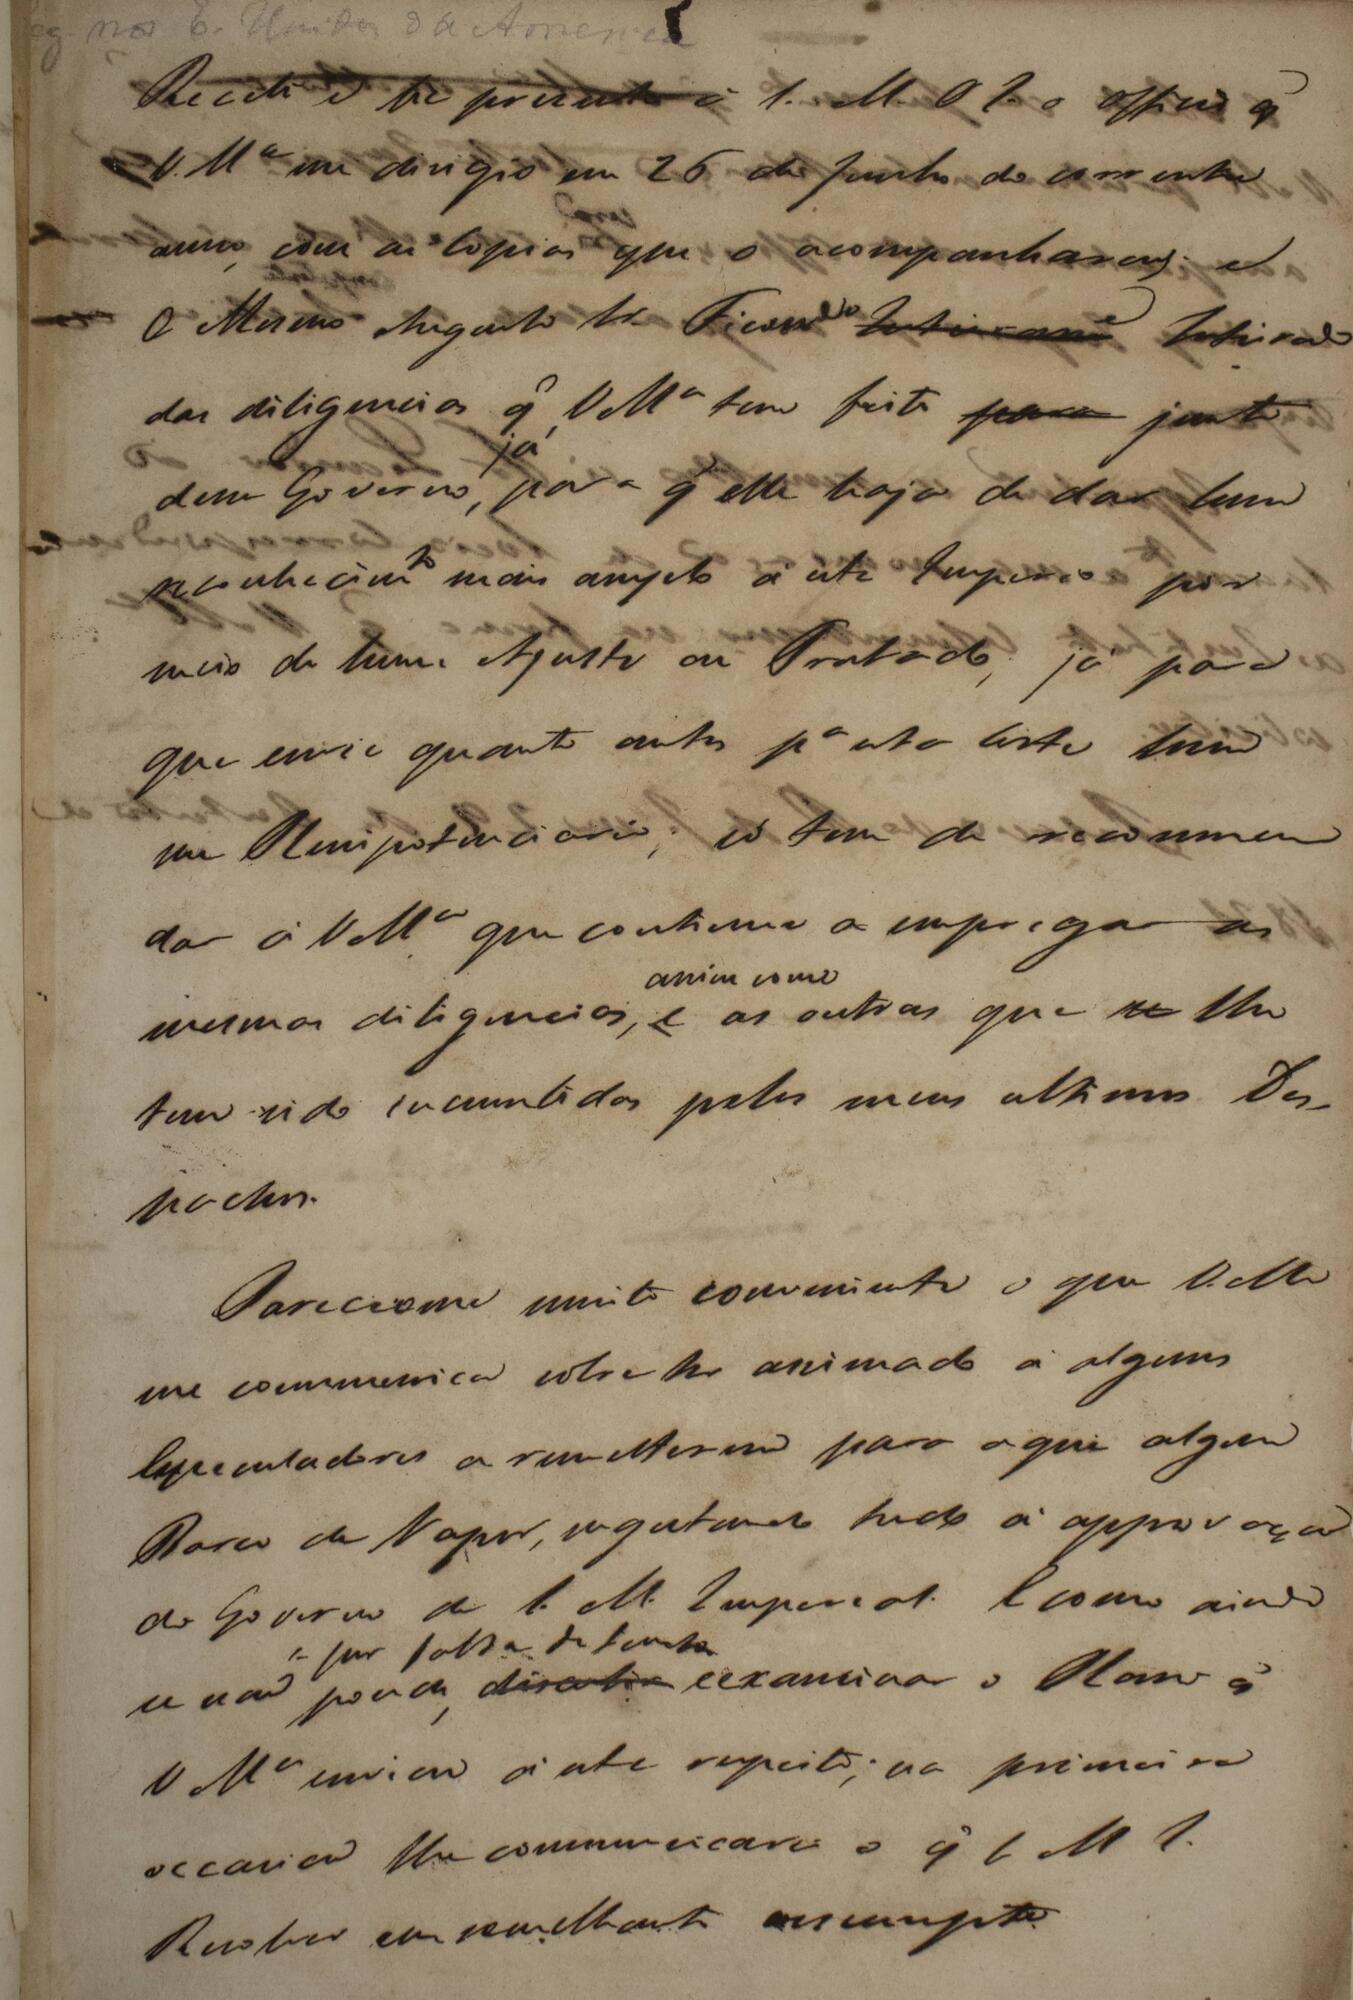 eg. nos E. Unidos da America
Recebi e fiz presente á S. M. O I. o officio q̃
V. Mce me dirigio em 26 de Junho do corrente
anno, com as Copias que o acompanharaõ; e
O Mesmo Augusto Sr. Ficando Inteirado
das diligencias q̃ V Mce tem feito para junto
desse Governo, já para q̃ elle haja de dar hum
reconhecimto mais amplo á este Imperio por
meio de hum Ajuste ou Tratado, já para
que envie quanto antes pa esta Corte hum
seu Plenipotenciario; só tem de recommen
dar á V Mce que continue a empregar as
mesmas diligencias, e assim como as outras que se lhe
tem sido incumbidas pelos meus ultimos Des-
pachos.
Pareceome muito conveniente o que V. Mce
me communica sobre ter animado á alguns
Especuladores a remetterem para aqui algum
Barco de Vapor, sugeitando tudo á approvaçaõ
do Governo de S. M. Imperial. E como ainda
se naõ poude, por falta de tempo discutir e examinar o Plano q̃
V Mce enviou á este respeito; na primeira
occasiaõ lhe communicarei o q̃ S M I.
Resolver em semelhante assumpto